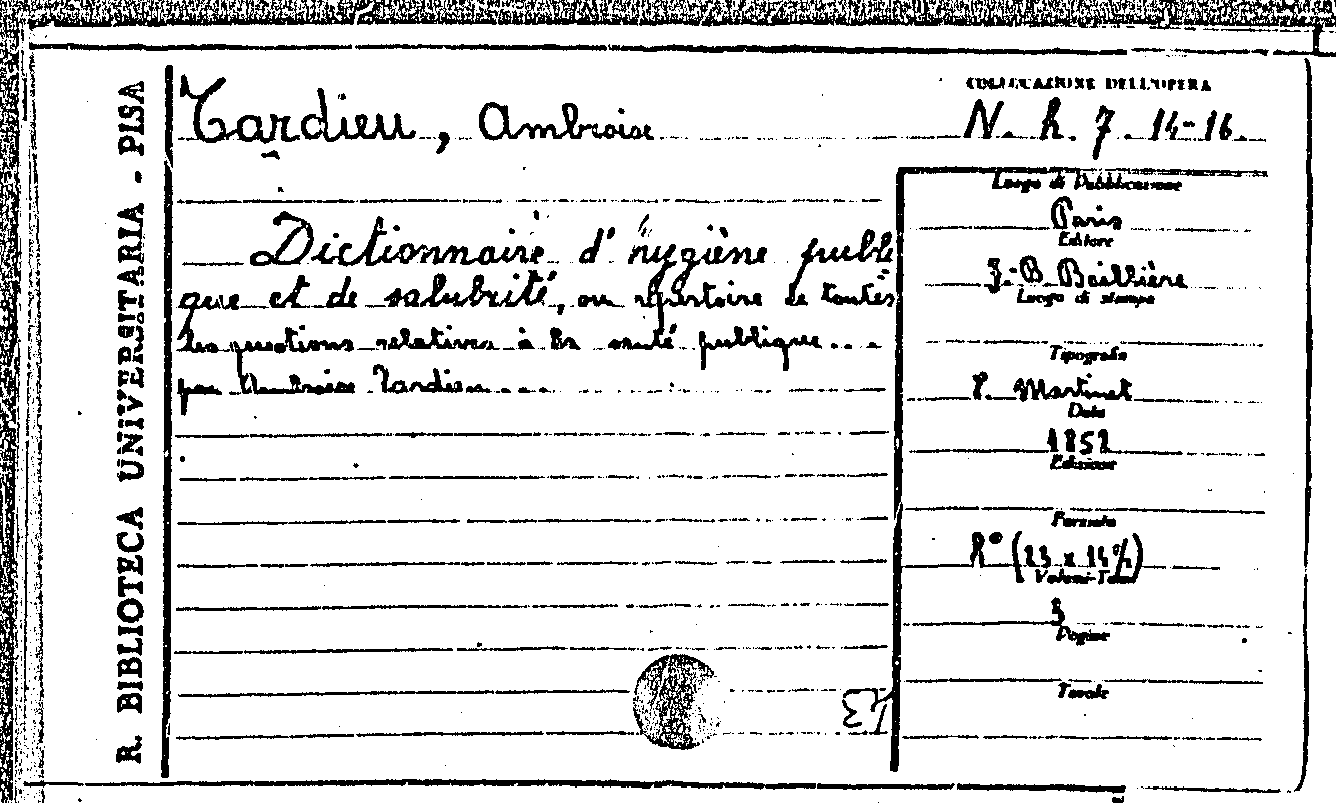 R. BIBLIOTECA UNIVERSITARIA - PISA
Tardieu, Ambroise
COLLOCAZIONE DELL'OPERA
N. h. 7. 14-16.
Dictionnaire d'hygiène publi
que et de salubrité, ou répertoire de toutes
les questions relatives à la santé publique...
par Ambroise Tardieu....
Luogo di Pubblicazione
Paris
Editore
J.-B. Baillière
Luogo di stampa
Tipografia
Martinet
Data
1852
Edizione
Formato
8° (23 x 14½)
Volumi-Tomi
3
Pagine
Tavole